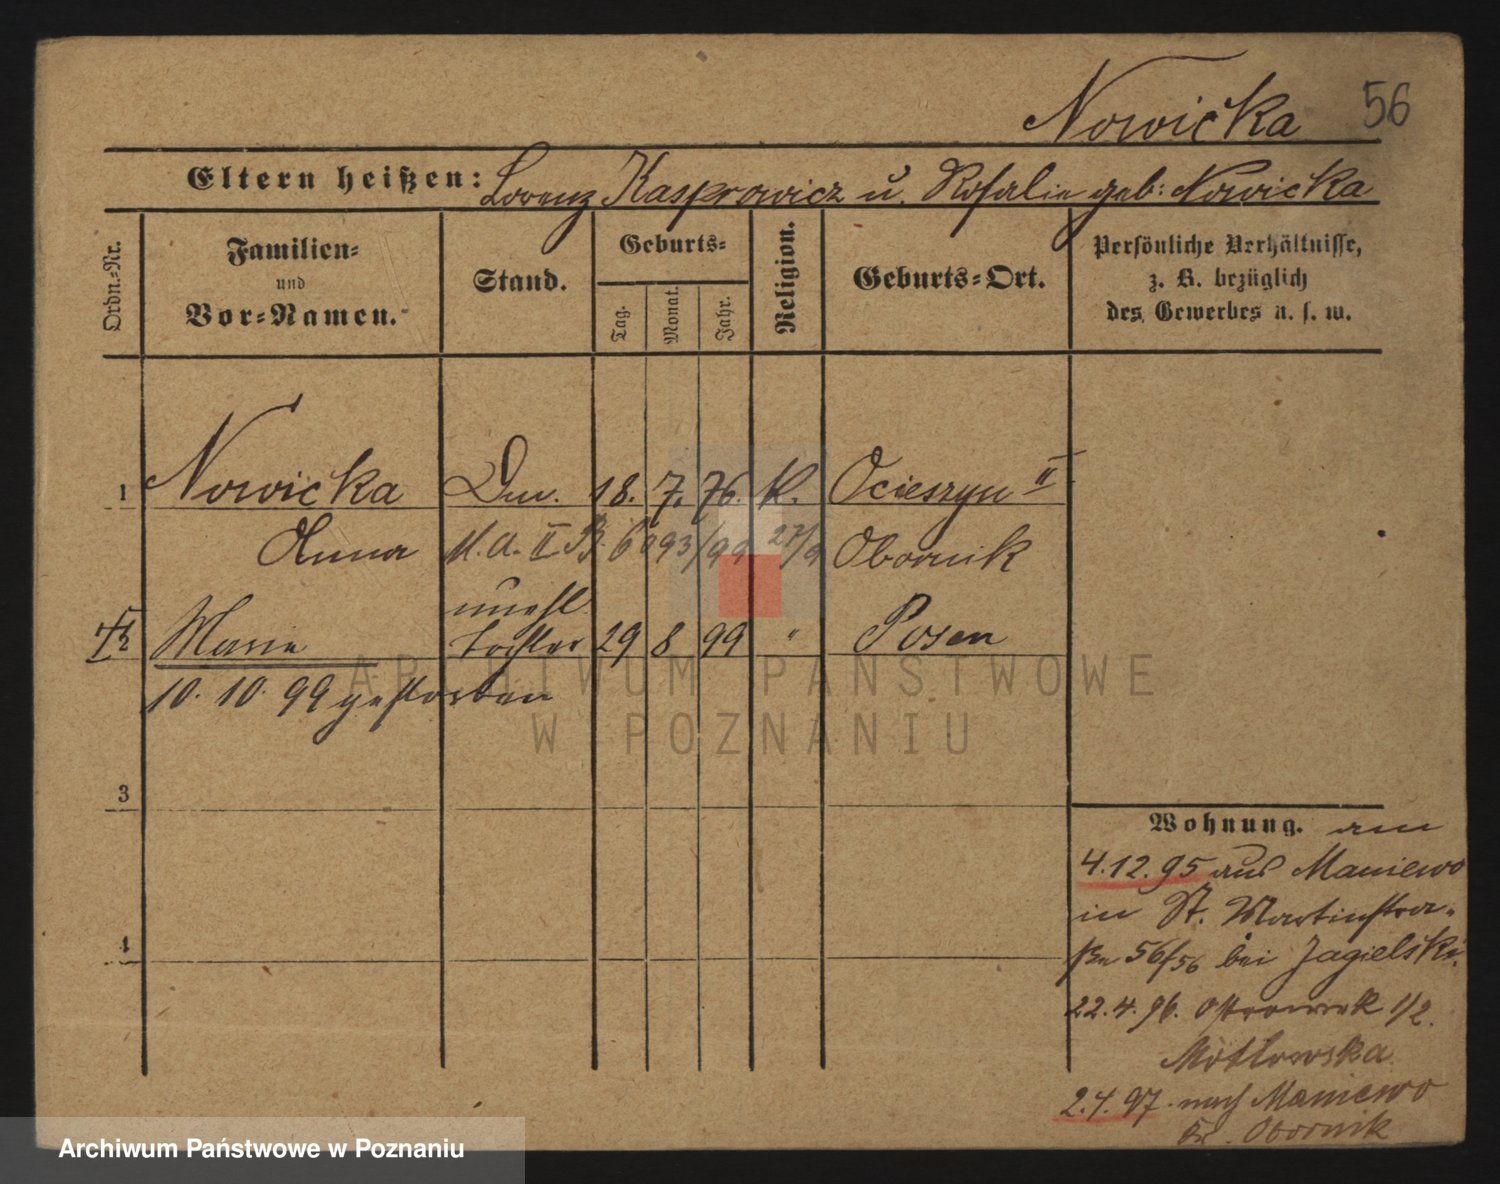 Nowicka 56
Eltern heißen: Lorenz Kasprowicz u. Rosalie geb: Nowicka
Ordn.-Nr.
Familien-
und
Vor-Namen.
Stand.
Geburts-
Tag.
Monat.
Jahr.
Religion.
Geburts-Ort.
Persönliche Verhältnisse,
z. B. bezüglich
des Gewerbes u. s. w.
1 Nowicka 18. 7. 76. K. Ocieszyn II
Anna M. A. II B. 6093/99 27/9 Obornik
unehl.
2 Marie Tochter 29 8 99 " Posen
10. 10. 99 gestorben
3
4
Wohnung. am
4.12.95 aus Maniewo
in St. Martinstra-
ße 56/56 bei Jagielski.
22.4.96. Ostrowek 1/2.
2.4.97. nach Maniewo
Kr. Obornik
ARCHIWUM PAŃSTWOWE
W POZNANIU
Archiwum Państwowe w Poznaniu